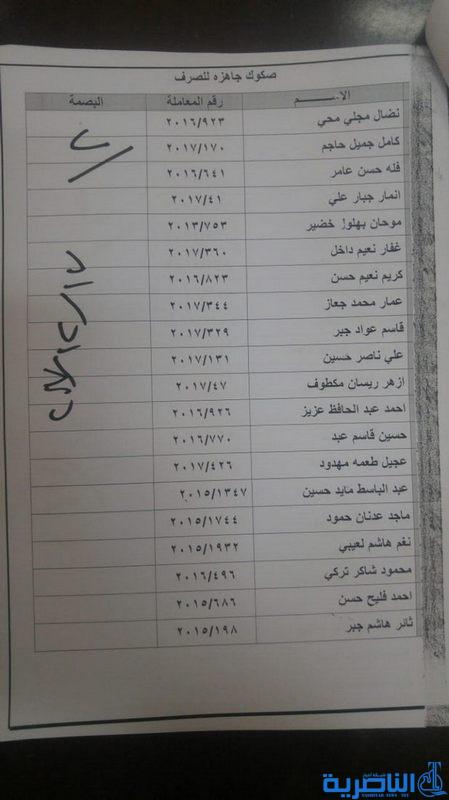 صكوك جاهزه للصرف
الاســـــــم رقم المعاملة البصمة
نضال مجلي محي ٢٠١٦/٩٢٣
كامل جميل حاجم ٢٠١٧/١٧٠
فله حسن عامر ٢٠١٦/٦٤١
انمار جبار علي ٢٠١٧/٤١
موحان بهلول خضير ٢٠١٣/٧٥٣
غفار نعيم داخل ٢٠١٧/٣٦٠
كريم نعيم حسن ٢٠١٦/٨٢٣
عمار محمد جعاز ٢٠١٧/٣٤٤
قاسم عواد جبر ٢٠١٧/٣٢٩
علي ناصر حسين ٢٠١٧/١٣١
ازهر ريسان مكطوف ٢٠١٧/٤٧
احمد عبد الحافظ عزيز ٢٠١٦/٩٢٦
حسين قاسم عبد ٢٠١٦/٧٧٠
عجيل طعمه مهدود ٢٠١٧/٤٢٦
عبد الباسط مايد حسين ٢٠١٥/١٣٤٧
ماجد عدنان حمود ٢٠١٥/١٧٤٤
نغم هاشم لعيبي ٢٠١٥/١٩٣٢
محمود شاكر تركي ٢٠١٦/٤٩٦
احمد فليح حسن ٢٠١٥/٦٨٦
ثائر هاشم جبر ٢٠١٥/١٩٨
شبكة اخبار
الناصرية
NASIRIYAH NEWS NET